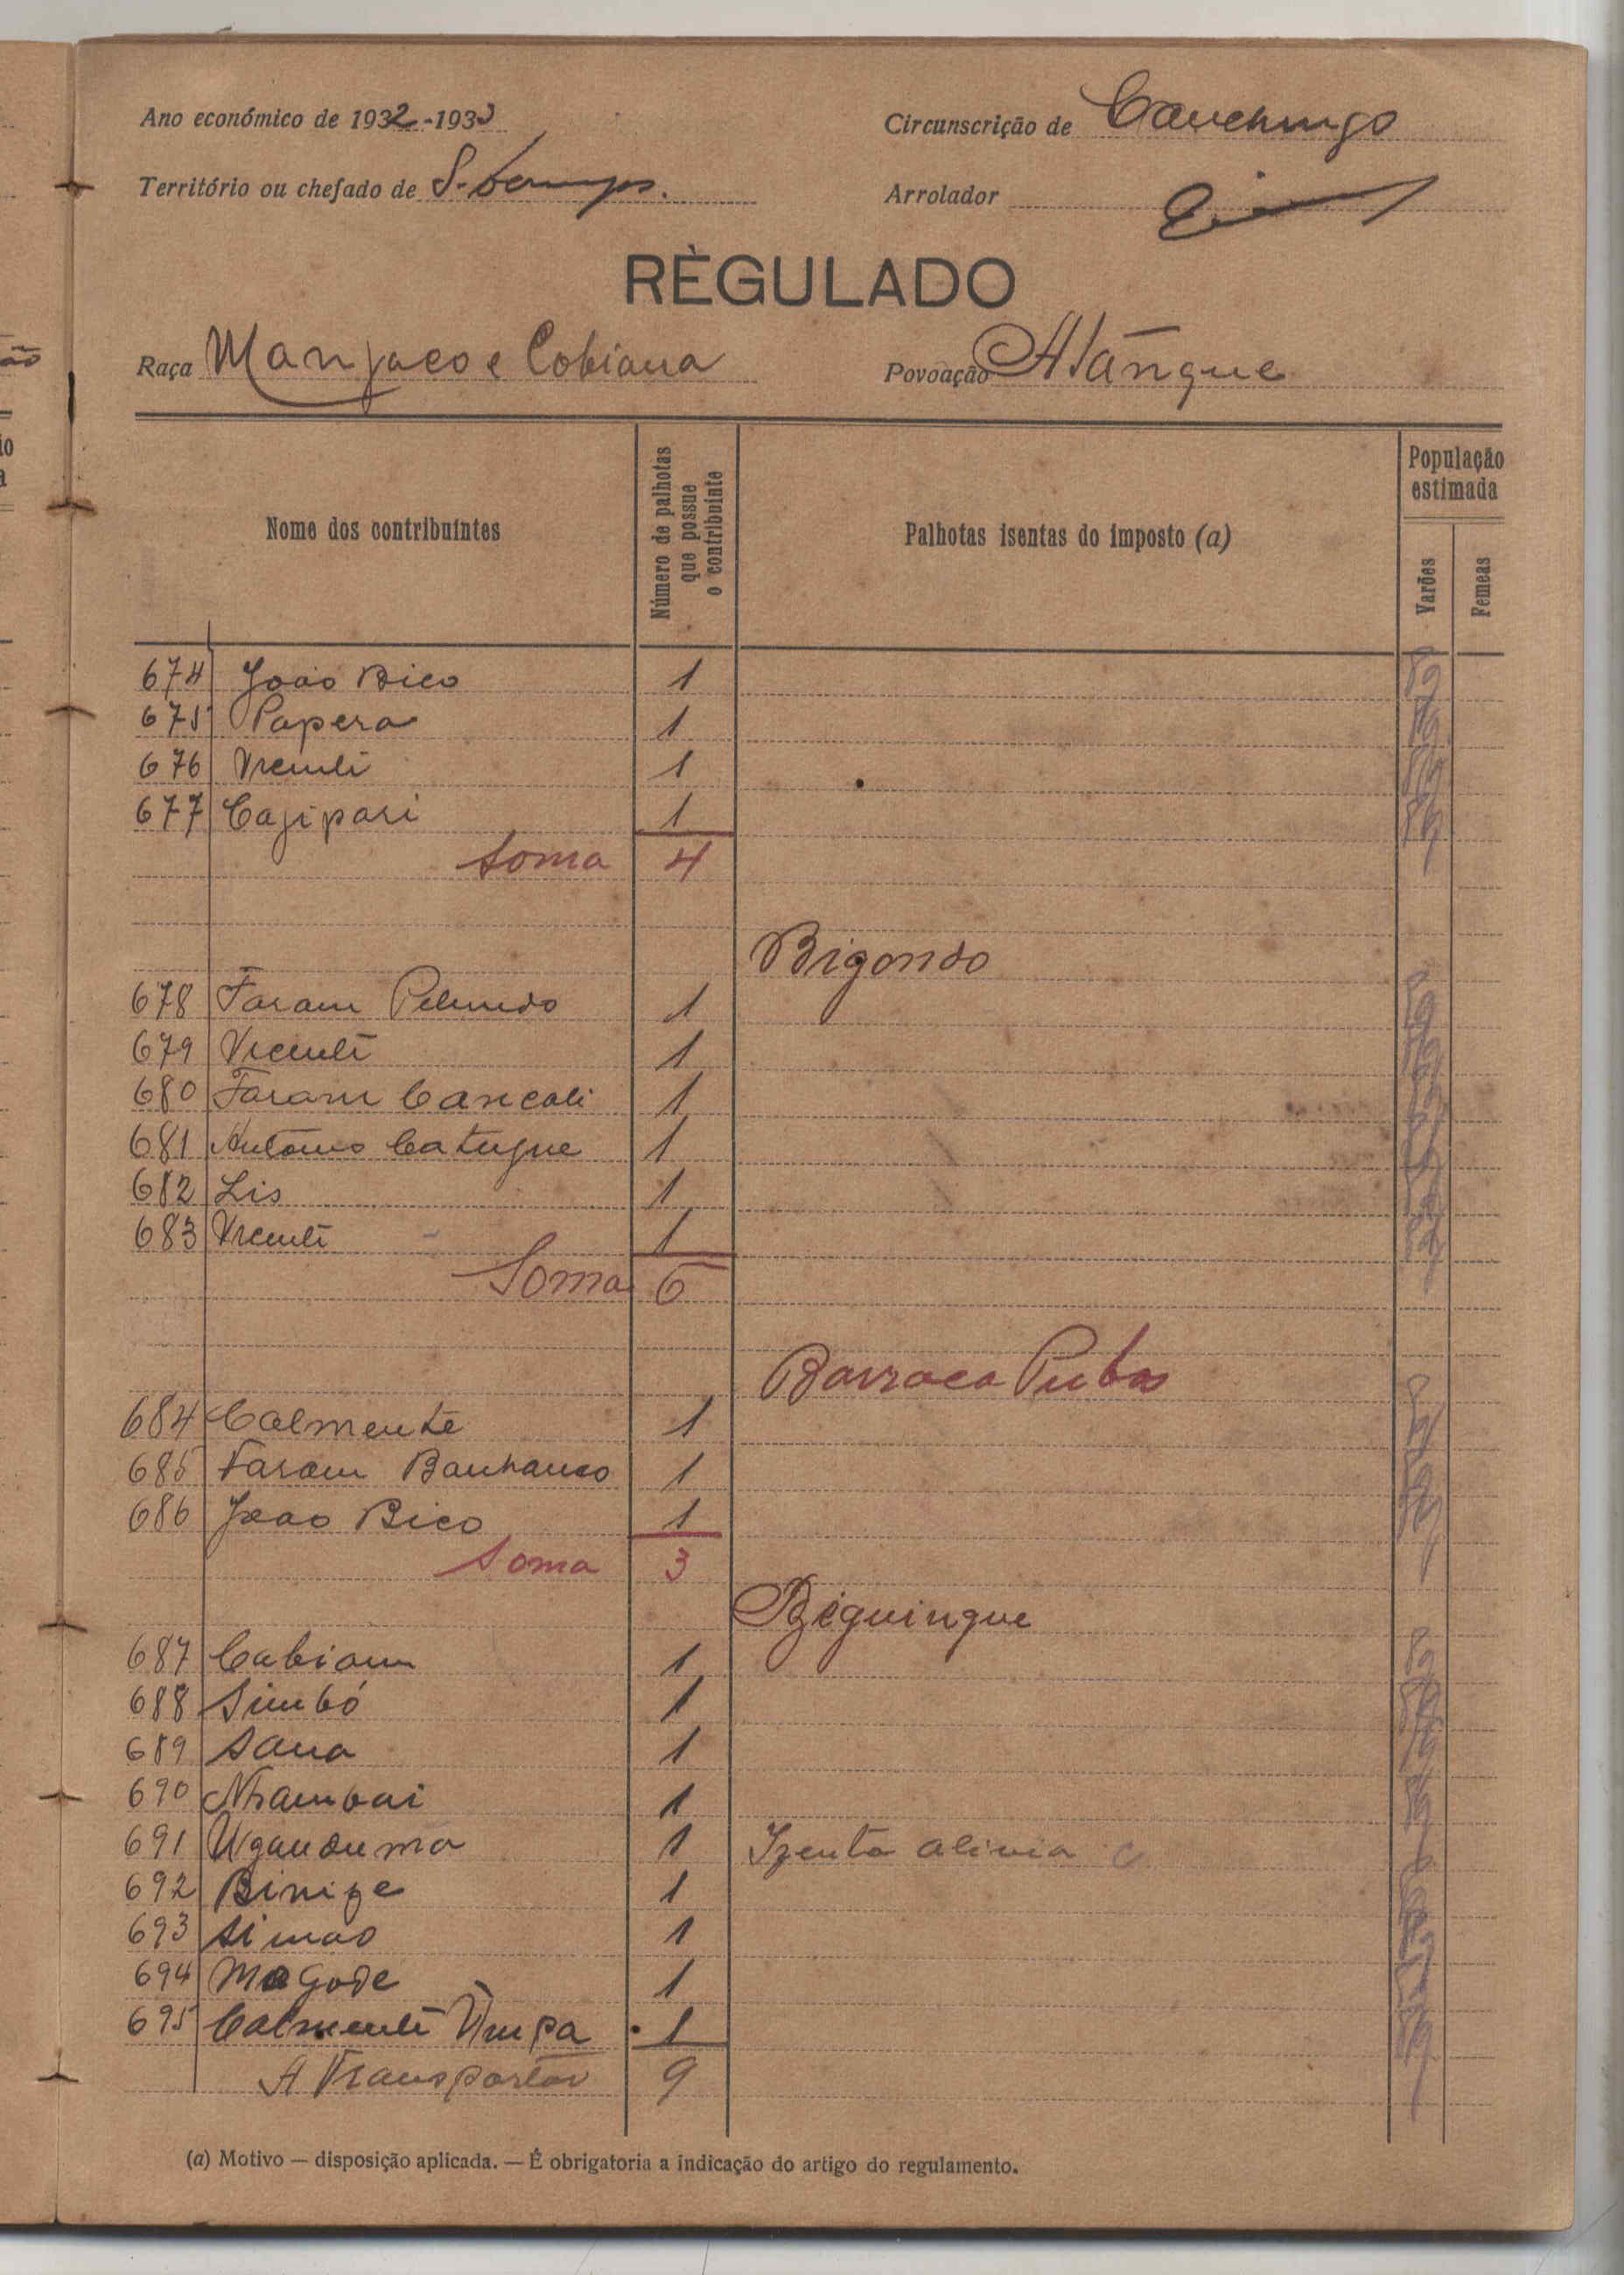 Ano económico de 1932-1933
Circunscrição de Cauchungo
Território ou chefado de S.
Arrolador
RÈGULADO
Raça Manjaco e Cobiana
Povoação
Nome dos contribuintes
Número de palhotas que possue o contribuinte
Palhotas isentas do imposto (a)
População estimada
Varões
Femeas
674 João Bico 1
675 Papera 1
676 Vicenti 1
677 Cajipari 1
Soma 4
Bigondo
678 Faram Pelundo 1
679 Vicenti 1
680 Faram Cancali 1
681 António Catugue 1
682 Lis 1
683 Vicenti 1
Soma 6
Barraca Pubas
684 Calmente 1
685 Faram 1
686 Joao Bico 1
Soma 3
Beguingue
687 Cabiam 1
688 Simbó 1
689 Sana 1
690 Nhambai 1
691 1
692 Binize 1
693 Simao 1
694 Magode 1
695 Calmenti 1
A Transportar 9
(a) Motivo — disposição aplicada. — É obrigatoria a indicação do artigo do regulamento.